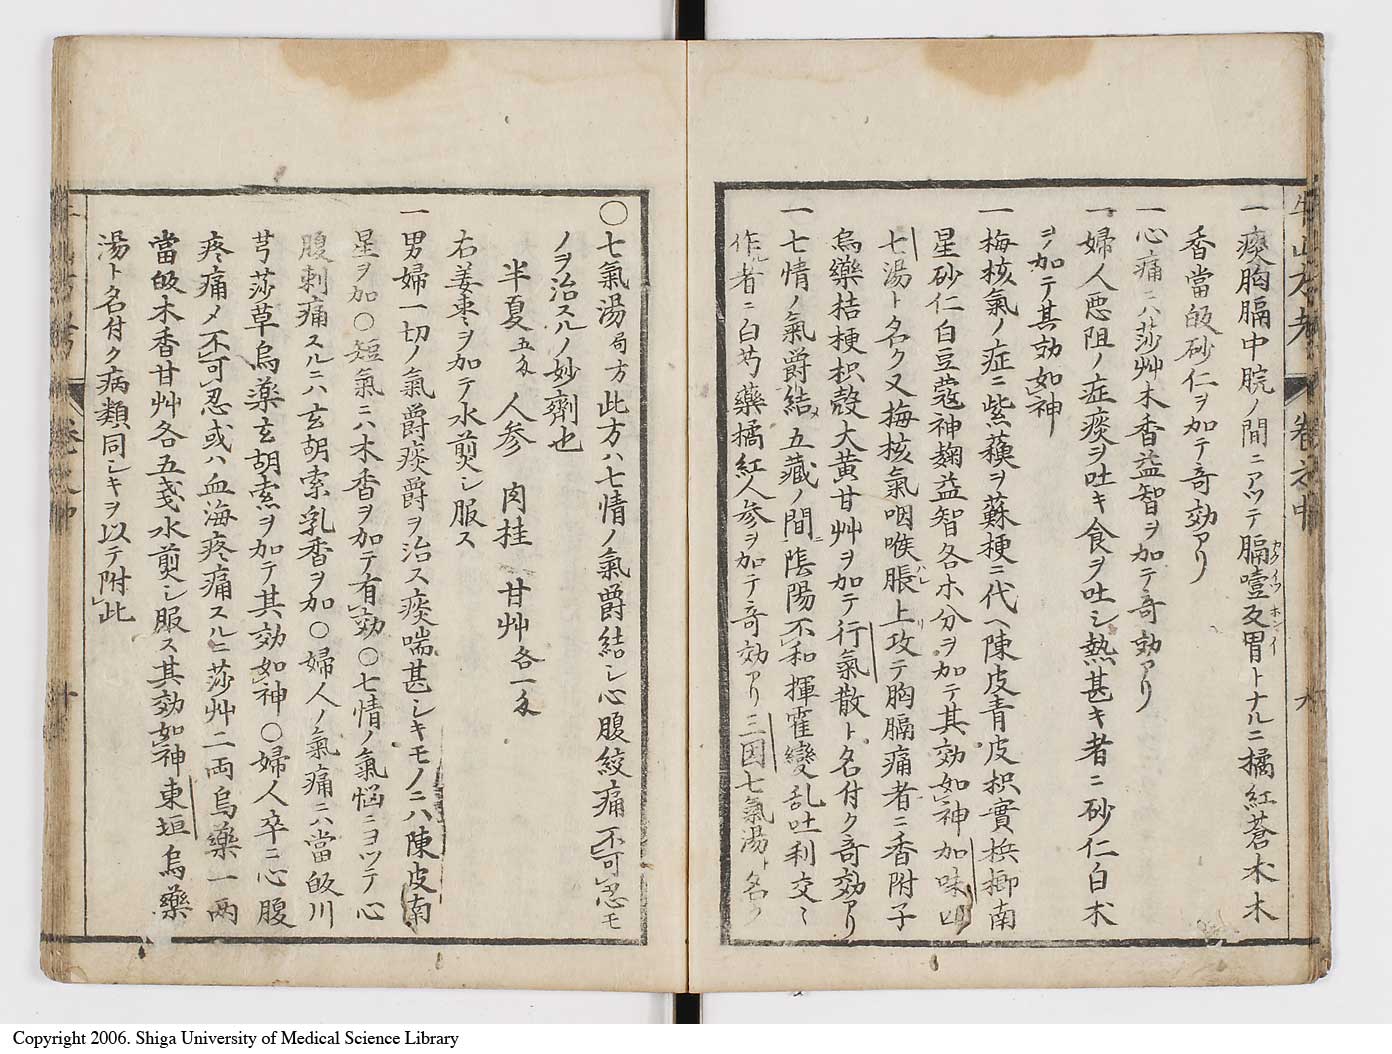 牛山方考 卷之中 九
一痰胸膈中脘ノ間ニアツテ膈噎反胃トナルニ橘紅蒼木木
カクイツ ホンイ
香當皈砂仁ヲ加テ奇効アリ
一心痛ニハ莎艸木香益智ヲ加テ奇効アリ
一婦人惡阻ノ症痰ヲ吐キ食ヲ吐シ熱甚キ者ニ砂仁白朮
ヲ加テ其効如神
一梅核氣ノ症ニ紫蘓ヲ蘇梗ニ代ヘ陳皮青皮枳實梹榔南
星砂仁白豆蔻神麹益智各ホ分ヲ加テ其効如神加味四
七湯ト名ク又梅核氣咽喉脹レ上リ攻テ胸膈痛者ニ香附子
烏藥桔梗枳殻大黄甘艸ヲ加テ行氣散ト名付ク奇効アリ
一七情ノ氣爵結メ五藏ノ間ニ陰陽不和揮霍變乱吐利交〻
作ル者ニ白芍藥橘紅人参ヲ加テ奇効アリ三因七氣湯ト名ク
〇七氣湯局方此方ハ七情ノ氣爵結シ心腹絞痛不可忍モ
ノヲ治スルノ妙劑也
半夏五匁 人参 肉桂 甘艸各一匁
右姜棗ヲ加テ水煎シ服ス
一男婦一切ノ氣爵痰爵ヲ治ス痰喘甚シキモノニハ陳皮南
星ヲ加〇短氣ニハ木香ヲ加テ有効〇七情ノ氣悩ニヨツテ心
腹刺痛スルニハ玄胡索乳香ヲ加〇婦人ノ氣痛ニハ當皈川
芎莎草烏藥玄胡索ヲ加テ其効如神〇婦人卒ニ心腹
疼痛メ不可忍或ハ血海疼痛スルニ莎艸二両烏藥一両
當皈木香甘艸各五戔水煎シ服ス其効如神東垣烏藥
湯ト名付ク病類同シキヲ以テ附此
卷之中 十
Copyright 2006. Shiga University of Medical Science Library